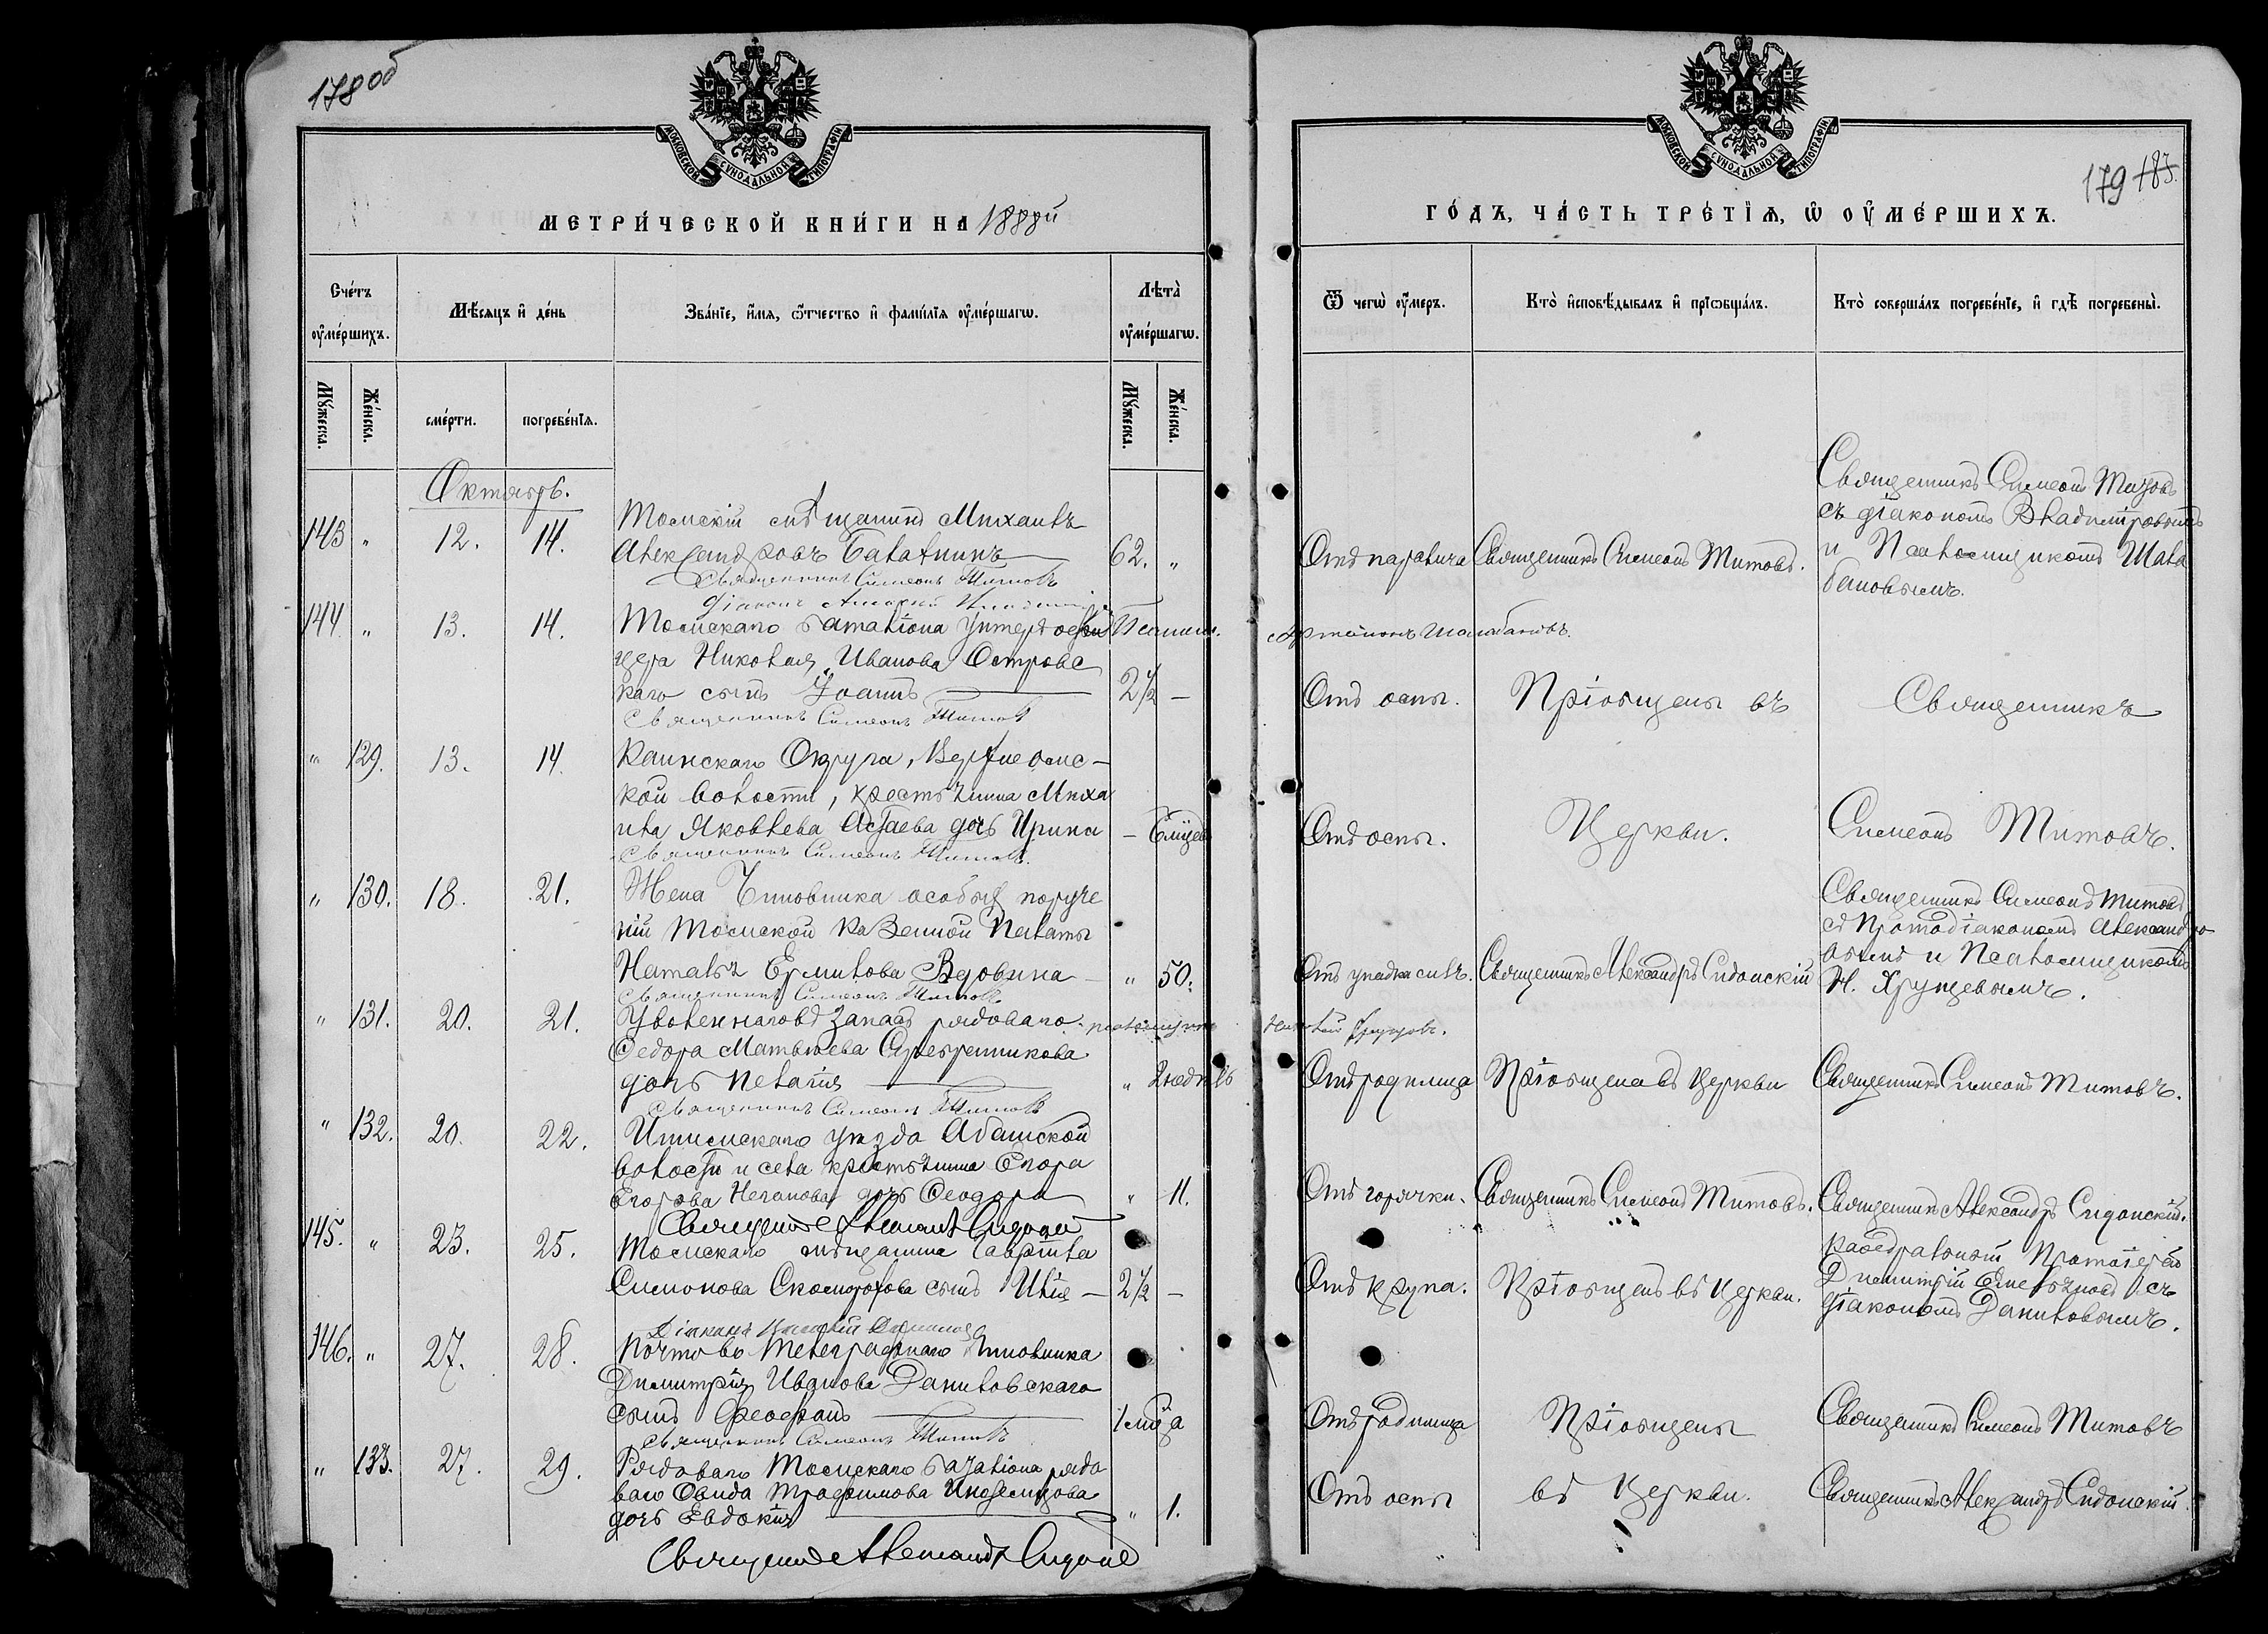 178 об
МОСКОВСКОЙ СѴНОДАЛЬНОЙ ТИПОГРАФІИ
МЕТРИ́ЧЕСКОЙ КНИ́ГИ НА 1888й
Сче́тъ оу҆ме́ршихъ.
Мѣ́сяцъ и҆ де́нь
Зва́нїе, и҆́мя, ѻ҆́тчество и҆ фами́лїя оу҆ме́ршагѡ.
Лѣта̀ оу҆ме́ршагѡ.
Мꙋ́жеска.
Же́нска.
сме́рти.
погребе́нїя.
Мꙋ́жеска.
Же́нска.
Октябрь.
143 " 12. 14.
Томскій мѣщанинъ Михаилъ
Александровъ Балахнинъ 62. "
Священникъ Симеонъ Титовъ
Діаконъ
144 " 13. 14.
Томскаго баталіона Унтеръ офи Псаломщ.
цера Николая Иванова Островс
каго сынъ Іоаннъ 2½ –
Священникъ Симеонъ Титовъ
" 129. 13. 14.
Каинскаго Округа, Верхнеомс–
кой волости, крестьянина Миха
ила Яковлева Астаева дочь Ирина –
Священникъ Симеонъ Титовъ.
" 130. 18. 21.
Жена Чиновника особых поруче
ній Томской Казенной Палаты
Наталья Ермилова Вдовина " 50.
Священникъ Симеонъ Титовъ
" 131. 20. 21.
Уволеннаго въ запасъ рядоваго псаломщикъ
Федора Матвѣева Серебренникова
дочь Пелагія " 2 недѣль
Священникъ Симеонъ Титовъ
" 132. 20. 22.
Ишимскаго уѣзда Абатской
волости и села крестьянина Егора
Егорова Неганова дочь Феодора " 11.
Священ Александръ Сидонс
145. " 23. 25.
Томскаго мѣщанина Гавріила
Симонова Скоморохова сынъ Илія – 2½ –
Діаконъ
146. " 27. 28.
Почтово Телеграфнаго Чиновника
Димитрія Иванова Даниловскаго
сынъ Феофанъ 1 мца
Священникъ Симеонъ Титовъ
" 133. 27. 29.
Рядоваго Томскаго баталіона рядо
ваго Овида Трофимова Иноземцова
дочь Евдокія " 1.
Священ Александръ Сидонс
179 183.
МОСКОВСКОЙ СѴНОДАЛЬНОЙ ТИПОГРАФІИ
ГО́ДЪ, ЧА́СТЬ ТРЕ́ТЇЯ, Ѡ҆ ОУ҆МЕ́РШИХЪ.
Ѿ чегѡ̀ оу҆́меръ.
Кто̀ и҆сповѣ́дывалъ и҆ прїѡбща́лъ.
Кто̀ соверша́лъ погребе́нїе, и҆ гдѣ̀ погребены̀.
Отъ паралича
Священникъ Симеонъ Титовъ.
Священникъ Симеонъ Титовъ
съ діакономъ Владиміровымъ
и Псаломщикомъ Шала
бановымъ.
Артемонъ Шалабановъ.
Отъ оспы.
Пріобщены въ
Священникъ
Отъ оспы.
Церкви.
Симеонъ Титовъ.
Отъ упадка силъ.
Священникъ Александръ Сидонскій
Священникъ Симеонъ Титовъ
съ Протодіакономъ Александро
вымъ и Псаломщикомъ
Н. Хрущевымъ.
Николай Хрущовъ.
Отъ родимца
Пріобщена въ Церкви
Священникъ Симеонъ Титовъ.
Отъ горячки.
Священникъ Симеонъ Титовъ.
Священникъ Александръ Сидонскій.
Отъ крупа.
Пріобщенъ въ Церкви.
Кафедральный Протоіерей
Димитрій съ
діакономъ Даниловымъ.
Отъ родимца
Пріобщены
Священникъ Симеонъ Титовъ
Отъ оспы
въ Церкви.
Священникъ Александръ Сидонскій.